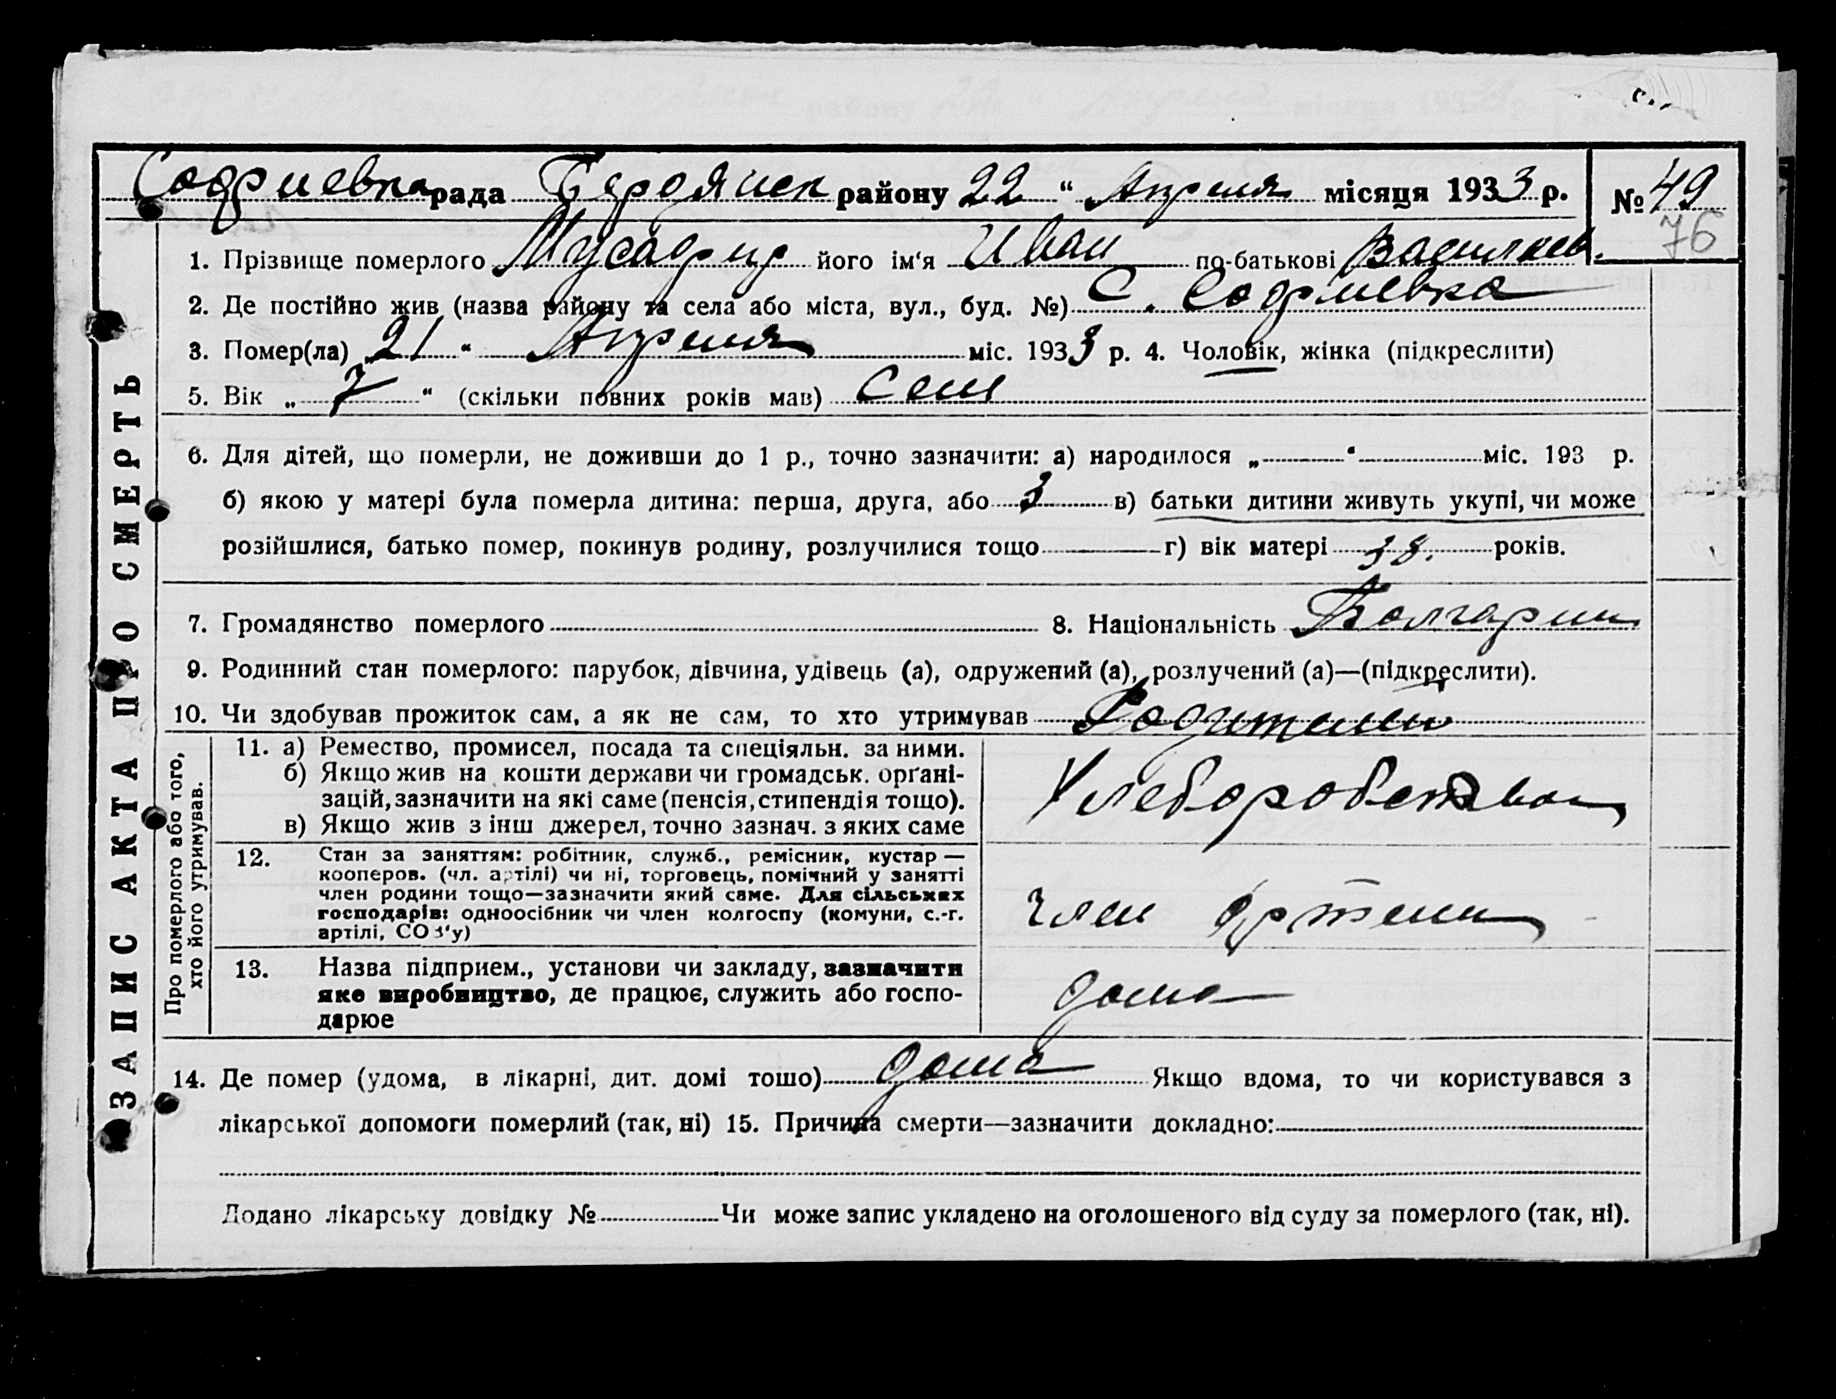 Софиевка рада Бердянск району 22 " Апреля місяця 1933 р. № 49
76
1. Прізвище померлого Мусафир його ім'я Иван по-батькові Васильев.
2. Де постійно жив (назва району та села або міста, вул., буд. №) С. Софиевка
3. Помер(ла) „21 " Апреля міс. 1933 р. 4. Чоловік, жінка (підкреслити)
5. Вік „ 7 " (скільки повних років мав) Сем
6. Для дітей, що померли, не доживши до 1 р., точно зазначити: а) народилося „ " міс. 193 р.
б) якою у матері була померла дитина: перша, друга, або 3 в) батьки дитини живуть укупі, чи може
розійшлися, батько помер, покинув родину, розлучилися тощо г) вік матері 38. років.
7. Громадянство померлого 8. Національність Болгарин
9. Родинний стан померлого: парубок, дівчина, удівець (а), одружений (а), розлучений (а)—(підкреслити).
10. Чи здобував прожиток сам, а як не сам, то хто утримував Родители
ЗАПИС АКТА ПРО СМЕРТЬ
Про померлого або того,
хто його утримував.
11. а) Ремество, промисел, посада та спеціяльн. за ними.
б) Якщо жив на кошти держави чи громадськ. орґані-
зацій, зазначити на які саме (пенсія, стипендія тощо).
в) Якщо жив з інш джерел, точно зазнач. з яких саме
Хлеборобством
12. Стан за заняттям: робітник, служб., ремісник, кустар —
кооперов. (чл. артілі) чи ні, торговець, помічний у занятті
член родини тощо—зазначити який саме. Для сільських
господарів: одноосібник чи член колгоспу (комуни, с.-г.
артілі, СОЗ'у)
член артели
13. Назва підприєм., установи чи закладу, зазначити
яке виробництво, де працює, служить або госпо-
дарює
дома
14. Де помер (удома, в лікарні, дит. домі тошо) дома Якщо вдома, то чи користувався з
лікарської допомоги померлий (так, ні) 15. Причина смерти—зазначити докладно:
Додано лікарську довідку № Чи може запис укладено на оголошеного від суду за померлого (так, ні).